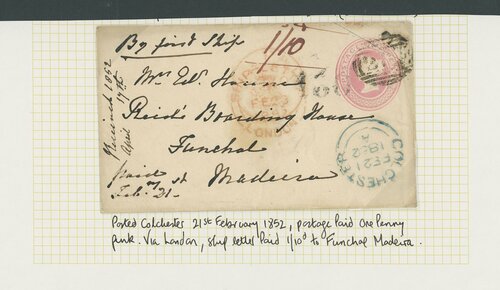 By first Ship
1/10
Mrs Edw.
Reid's Boarding House
Funchal
Madeira
paid
Feb. 21st
Received 1852
April 17th
FE 23
LONDON
COLCHESTER
FE 21
1852
A
Posted Colchester 21st February 1852, postage Paid One Penny
pink. Via London, ship letter Paid 1/10d to Funchal Madeira.